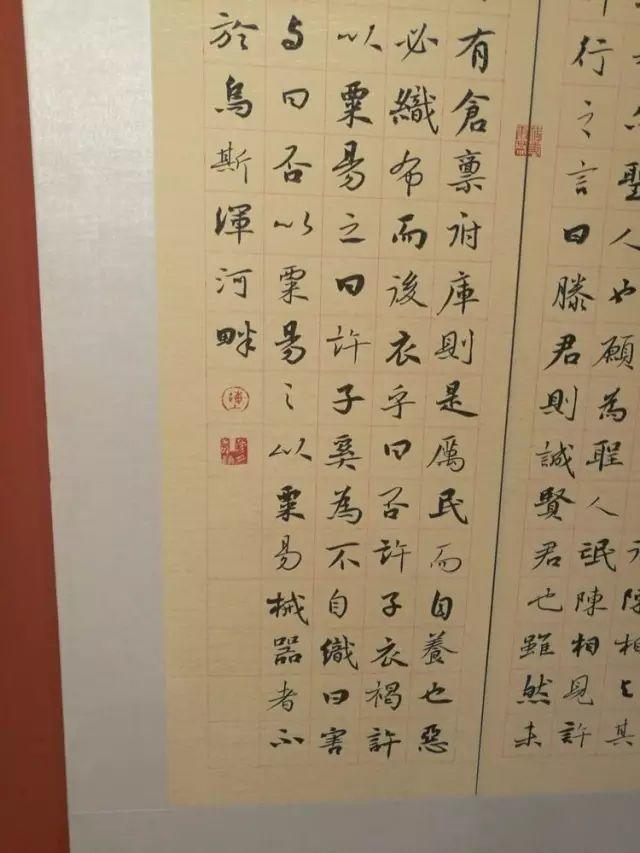 陳相与其
聖人也願為聖人氓陳相見許
行之言曰滕君則誠賢君也雖然未
有倉廩府庫則是厲民而自養也惡
必織布而後衣乎曰否許子衣褐許
以粟易之曰許子奚為不自織曰害
与曰否以粟易之以粟易械器者不
於烏斯渾河畔